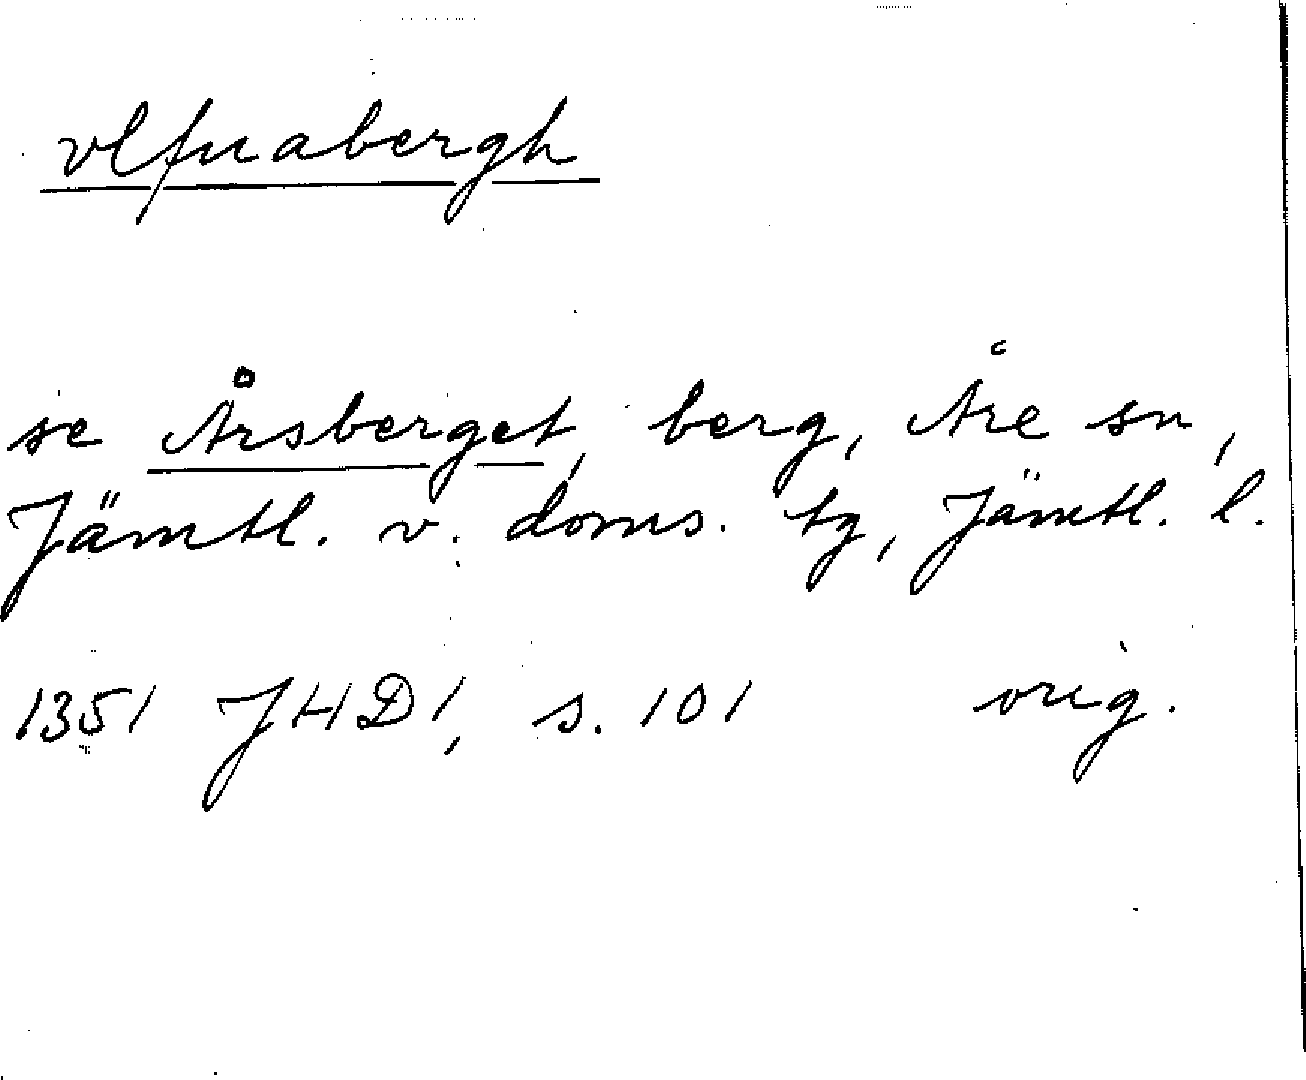 vlfnabergh
se Årsberget, berg, Åre sn,
Jämtl. v. doms. tg, Jämtl. l.
1351 JHD 1, s. 101 orig.